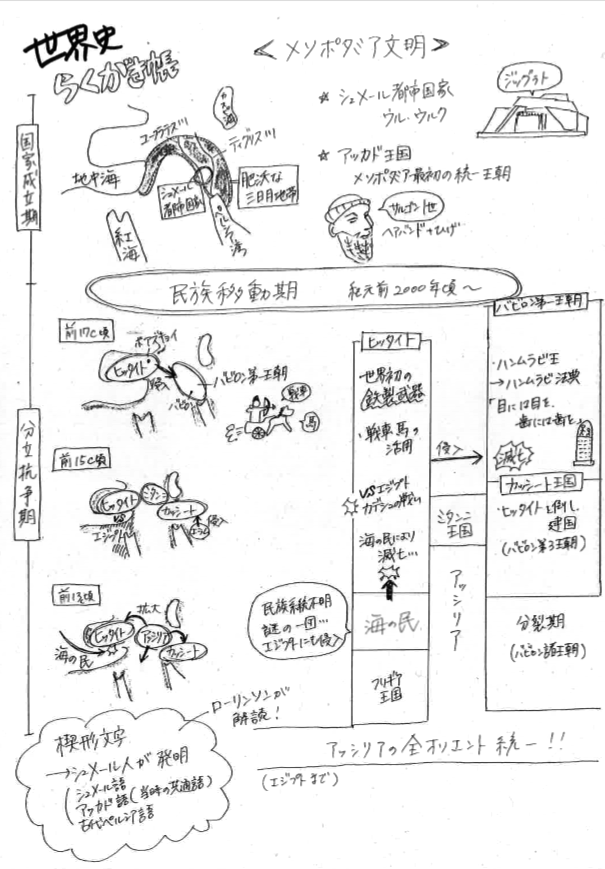 世界史
らくがき帳
≪メソポタミア文明≫
☆ シュメール都市国家
ウル・ウルク
ジッグラト
☆ アッカド王国
メソポタミア最初の統一王朝
サルゴン1世
ヘアバンド+ひげ
国家成立期
カスピ海
ユーフラテス川
ティグリス川
地中海
シュメール
都市国家
肥沃な
三日月地帯
紅海
ペルシア湾
民族移動期 紀元前2000年頃〜
分立抗争期
前17C頃
ボアズキョイ
ヒッタイト
侵入
バビロン第一王朝
バビロン
戦車
馬
前15C頃
ヒッタイト
ミタンニ
カッシート
エジプト
エラム
侵入
前13C頃
拡大
ヒッタイト
アッシリア
カッシート
海の民
ヒッタイト
世界初の
鉄製武器
・戦車馬の
活用
VSエジプト
カデシュの戦い
海の民により
滅亡…
民族系統不明
謎の一団…
エジプトにも侵入
海の民
フリギア
王国
侵入
ミタンニ
王国
アッシリア
バビロン第一王朝
・ハンムラビ王
→ハンムラビ法典
「目には目を、
歯には歯を」
滅亡
カッシート王国
・ヒッタイトを倒し、
建国
(バビロン第3王朝)
分裂期
(バビロン諸王朝)
アッシリアの全オリエント統一!!
(エジプトまで)
ローリンソンが
解読!
楔形文字
→シュメール人が発明
シュメール語
アッカド語(当時の共通語)
古代ペルシア語